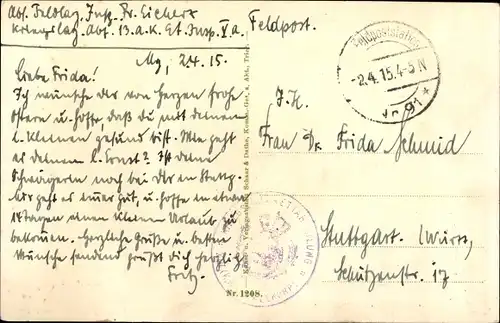 Abs. Feldlaz. Insp. Fr. Eichert
Kriegslaz. Abt. 13. A.K. Et. Insp. V a.
Feldpost.
2.4.15.
Liebe Frida!
Ich wünsche dir von Herzen frohe
Ostern u. hoffe, daß du mit deinem
l. Kleinen gesund bist. Wie geht
es deinem l. Ernst? Ist deine
Schwägerin noch bei dir in Stuttg.
Mir geht es immer gut, u. hoffe in etwa
14 Tagen einen kleinen Urlaub zu
bekommen. Herzliche Grüße u. besten
Wünsche sendend grüßt dich herzlich
Fritz.
Nr. 1208.
Feldpoststation
-2.4.15.4-5N
Nr. 91 *
Frau Dr. Frida Schmid
Stuttgart. (Württ.
Schützenstr. 17